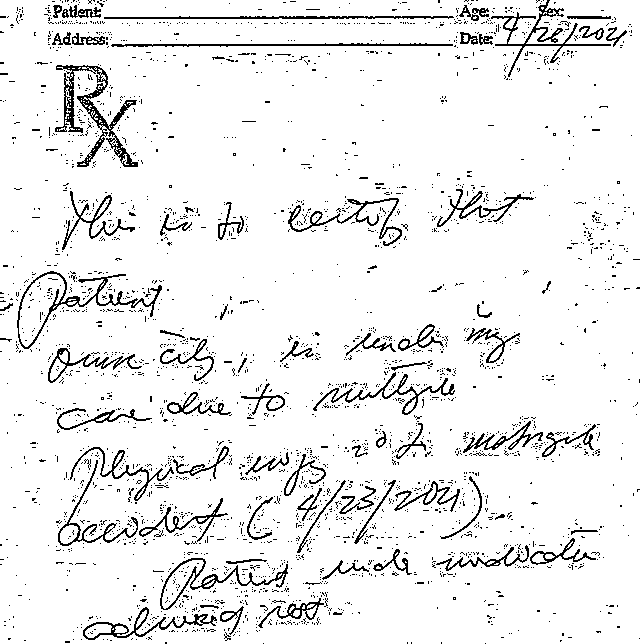 Patient: Age: Sex:
Address: Date: 4/28/2021
Rx
This is to certify that
Patient
city, is under my
care due to multiple
physical injs 2° to motorcycle
accident (4/23/2021)
Patient under medication
advised rest